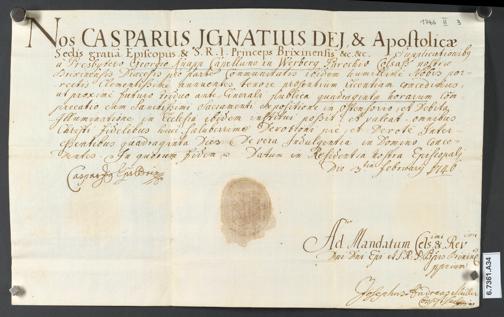 1746 II 3
Nos CASPARUS JGNATIUS DEJ, & Apostolicæ
Sedis gratiâ Episcopus & S. R. I. Princeps Brixinensis &c. &c. Supplicationibq
à Presbytero Georgio Knapp Capellano in Werberg Parochiæ nostræ
Brixinensis Diæcesis pro parte Communitatis ibidem humillime Nobis por-
rectis Clementissime annuentes tenore præsentium licentiam concedimus,
ut proxime futuro ibidem publica quadraginta horarum
precatio cum Sanctissimi Sacramenti expositione in ostensorio et debita
illuminatione in Ecclesia ibidem institui possit et valeat. omnibus
Christi fidelibus huic saluberrimæ Devotioni piè, et devotè Inter-
essentibus quadraginta Dies de vera Indulgentia in Domino conce-
dentes. In quorum fidem Datum in Residentia nostra Episcopali
Die 3tia February 1746
Ad Mandatum Cels. & Rev.
Dni Dni Epi et S. R. I. Principis
proprium
Josephus Andreas
6.7361.A34